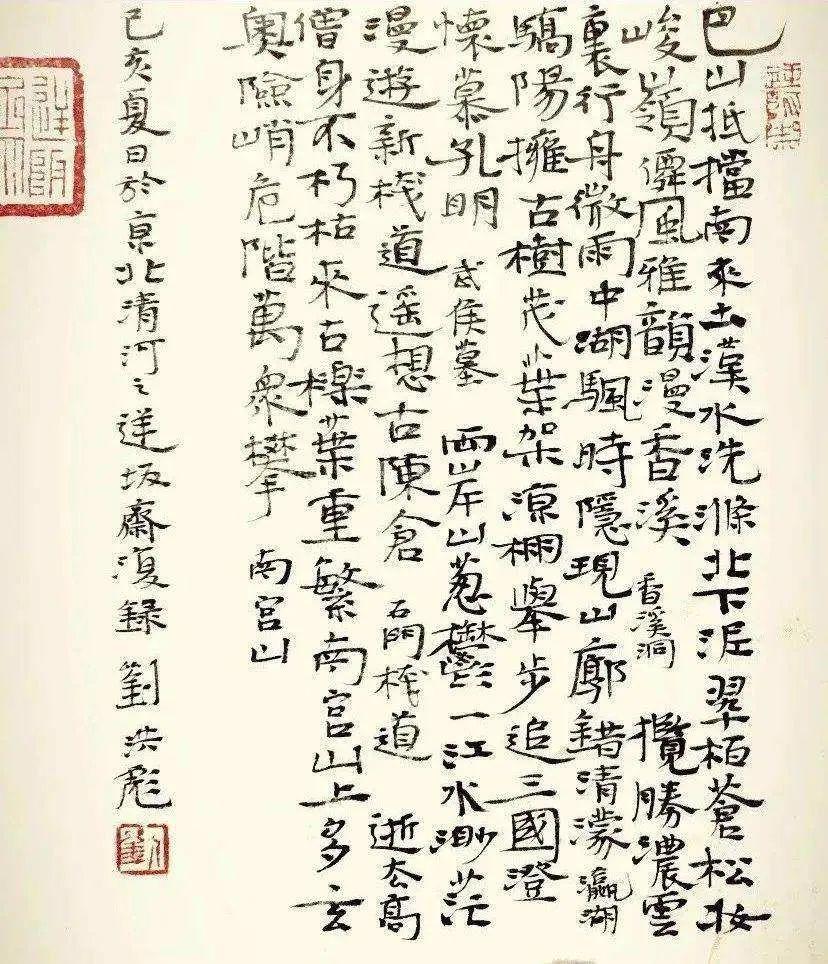 巴山抵擋南來土漢水洗滌北下泥翠柏蒼松妝
峻嶺僻風雅韻漫香溪 香溪洞 攬勝濃雲
裏行舟微雨中湖颿時隱現山廓錯清濛 瀛湖
驕陽擁古樹茂葉架涼棚舉步追三國澄
懷慕孔明 武侯墓 兩岸山蔥鬱一江水渺茫
漫遊新棧道遥想古陳倉 石門棧道 逝去高
僧身不朽枯來古櫟葉重繁南宫山上多玄
奧險峭危階萬衆攀 南宫山
己亥夏日於京北清河之逆坂齋復録 劉洪彪
劉